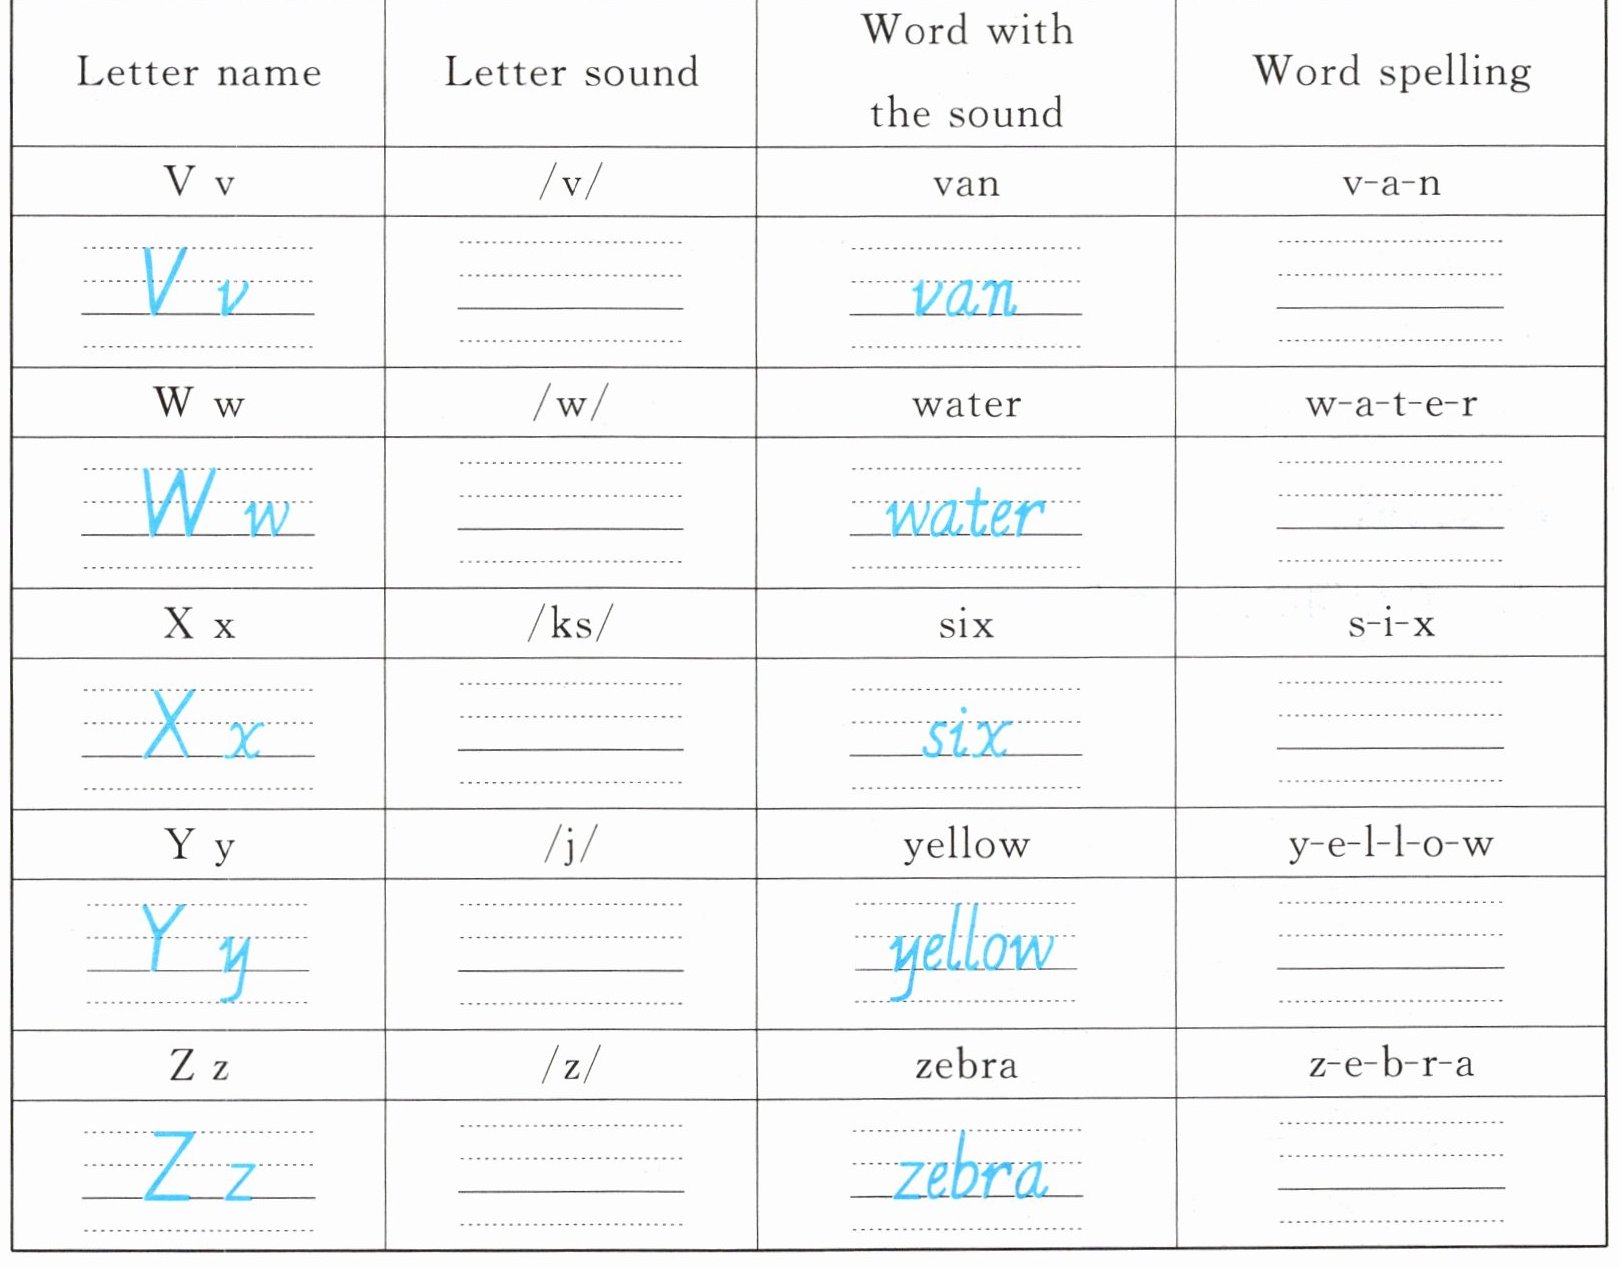 Letter name Letter sound Word with the sound Word spelling
V v /v/ van v-a-n
V v van
W w /w/ water w-a-t-e-r
W w water
X x /ks/ six s-i-x
X x six
Y y /j/ yellow y-e-l-l-o-w
Y y yellow
Z z /z/ zebra z-e-b-r-a
Z z zebra